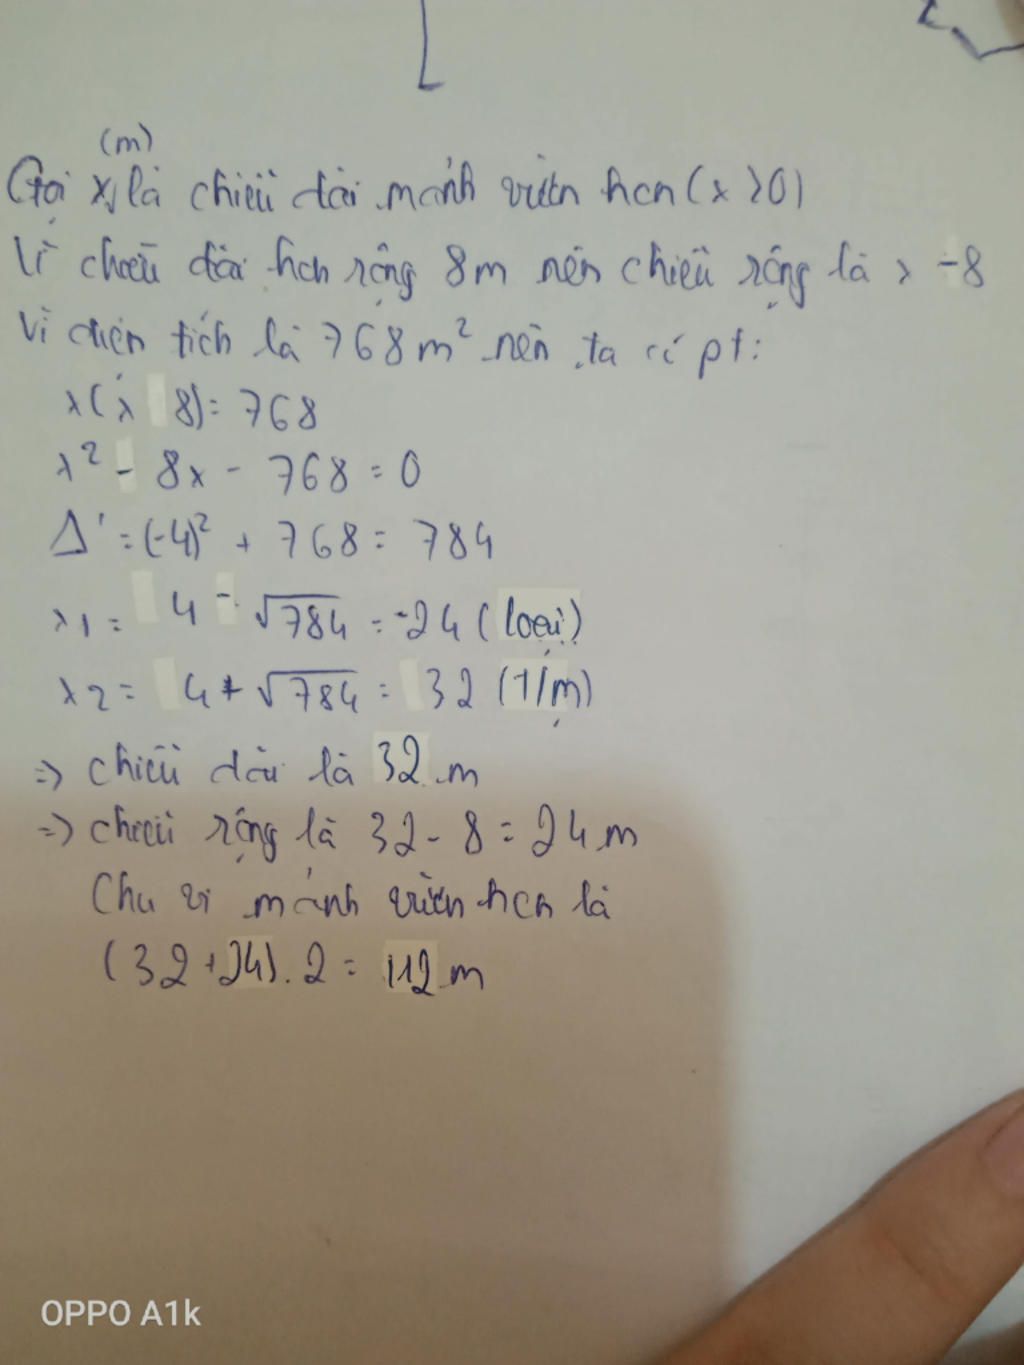 (m)
Gọi x là chiều dài mảnh vườn hcn (x > 0)
Vì chiều dài hơn rộng 8m nên chiều rộng là x - 8
Vì diện tích là 768m² nên ta có pt:
x(x 8) = 768
x² - 8x - 768 = 0
Δ' = (-4)² + 768 = 784
x1 = 4 - √784 = -24 (loại)
x2 = 4 + √784 = 32 (T/m)
=> chiều dài là 32 m
=> chiều rộng là 32 - 8 = 24 m
Chu vi mảnh vườn hcn là
(32 + 24) . 2 = 112 m
OPPO A1k